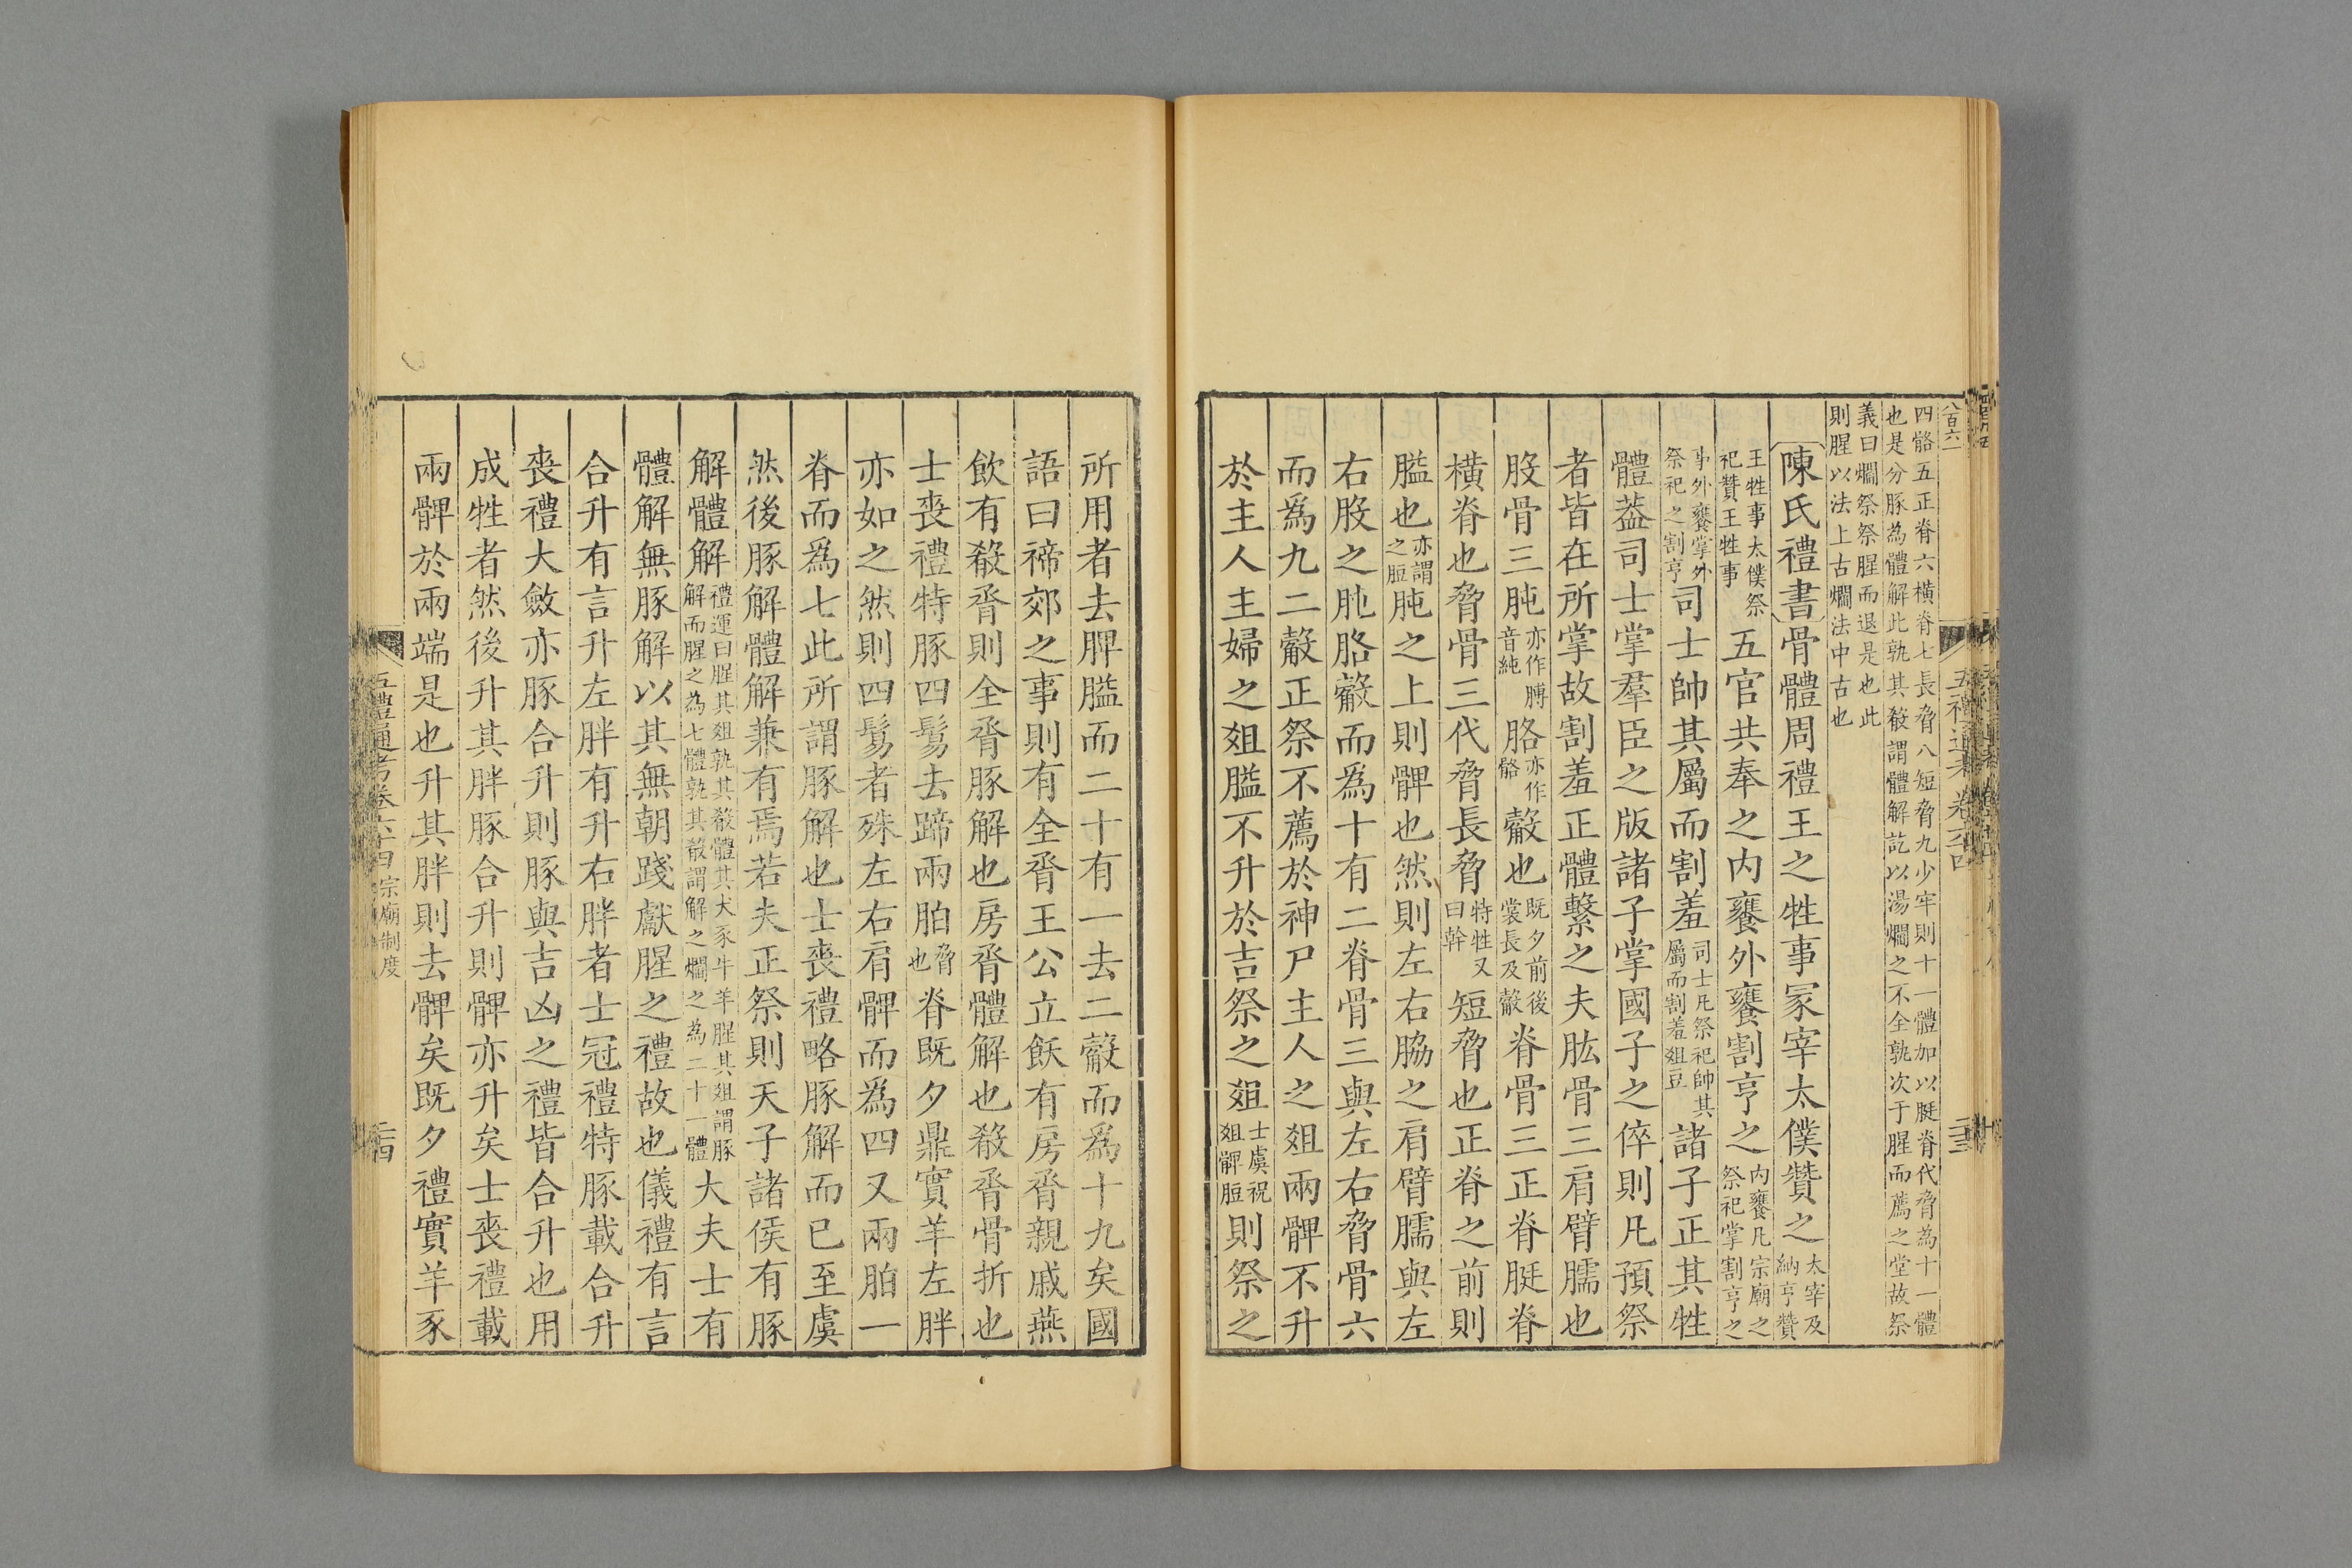 八百六一
四骼五正脊六橫脊七長脅八短脅九少牢則十一體加以脡脊代脅為十一體
也是分豚為體解此孰其殽謂體解訖以湯爓之不全孰次于腥而薦之堂故祭
義曰爓祭祭腥而退是也此
則腥以法上古爓法中古也
陳氏禮書骨體周禮王之牲事冢宰太僕贊之太宰及納亨贊
王牲事太僕祭祀贊王牲事五官共奉之内饔外饔割亨之内饔凡宗廟之祭祀掌割亨之
事外饔掌外祭祀之割亨司士帥其屬而割羞司士凡祭祀帥其屬而割羞俎豆諸子正其牲
體葢司士掌羣臣之版諸子掌國子之倅則凡預祭
者皆在所掌故割羞正體繫之夫肱骨三肩臂臑也
股骨三肫亦作膊音純胳亦作骼觳也既夕前後裳長及觳脊骨三正脊脡脊
橫脊也脅骨三代脅長脅特牲又曰幹短脅也正脊之前則
膉也亦謂之脰肫之上則髀也然則左右脇之肩臂臑與左
右股之肫胳觳而爲十有二脊骨三與左右脅骨六
而爲九二觳正祭不薦於神尸主人之俎兩髀不升
於主人主婦之俎膉不升於吉祭之俎士虞祝俎髀脰則祭之
五禮通考 卷六十四
二十三
所用者去髀膉而二十有一去二觳而爲十九矣國
語曰禘郊之事則有全脀王公立飫有房脀親戚燕
飲有殽脀則全脀豚解也房脀體解也殽脀骨折也
士喪禮特豚四鬄去蹄兩胉脅也脊既夕鼎實羊左胖
亦如之然則四鬄者殊左右肩髀而爲四又兩胉一
脊而爲七此所謂豚解也士喪禮略豚解而已至虞
然後豚解體解兼有焉若夫正祭則天子諸侯有豚
解體解禮運曰腥其俎孰其殽體其犬豕牛羊腥其俎謂豚解而腥之為七體孰其殽謂解之爓之為二十一體大夫士有
體解無豚解以其無朝踐獻腥之禮故也儀禮有言
合升有言升左胖有升右胖者士冠禮特豚載合升
喪禮大斂亦豚合升則豚與吉凶之禮皆合升也用
成牲者然後升其胖豚合升則髀亦升矣士喪禮載
兩髀於兩端是也升其胖則去髀矣既夕禮實羊豕
五禮通考卷六十四 宗廟制度
二十四